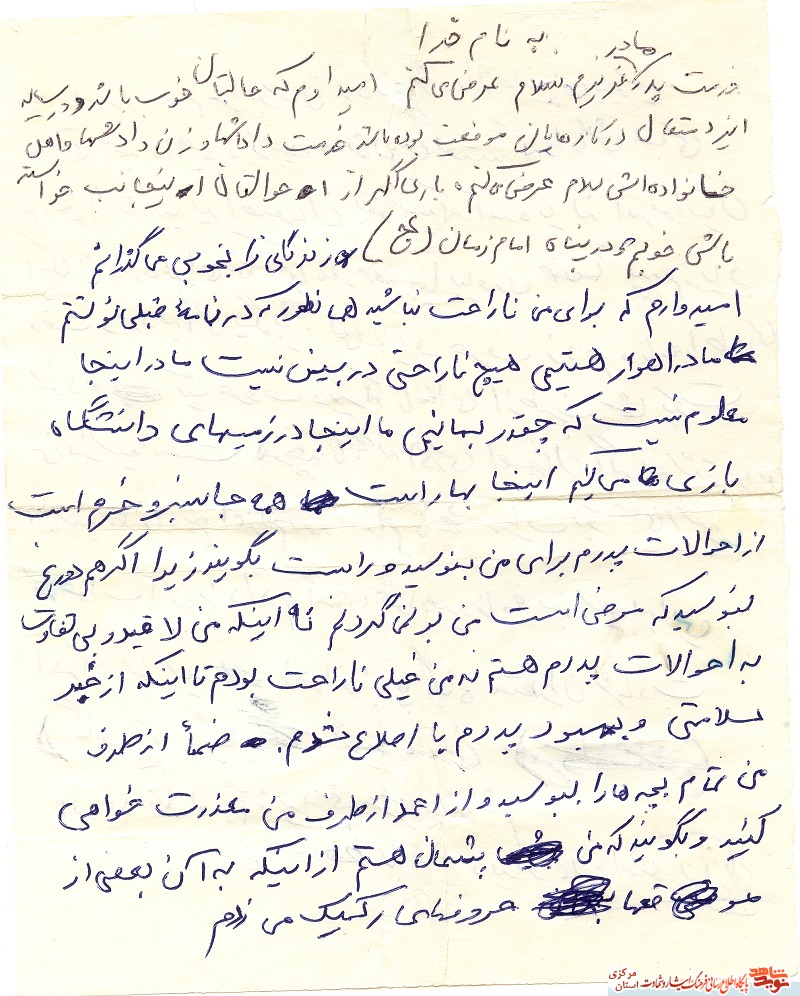 به نام خدا
خدمت پدر و مادر عزیزم سلام عرض می کنم امیدوارم که حالتان خوب باشد و در سایه
ایزد متعال در کارهایتان موفقیت بوده باشد خدمت داداشها و زن داداشها و اهل
خانواده اشی سلام عرض می کنم، باری اگر از احوالقال اینجانب خواسته
باشی خوبم در پناه امام زمان (عج) روزندگانی را بخوبی می گذرانم
امیدوارم که برای من ناراحت نباشید همانطور که در نامهٔ قبلی نوشتم
ما در اهواز هستیم هیچ ناراحتی در بین نیست ما در اینجا
معلوم نیست که چقدر بمانیم ما اینجا در زمینهای دانشگاه
بازی می کنیم اینجا بهار است همه جا سبز و خرم است
از احوالات پدرم برای من بنوسید و راست بگویند زیرا اگر هم دورغ
بنوسید که مرض است من بر نمی گردم نه اینکه من لا قید و بی تفاوت
به احوالات پدرم هستم نه من خیلی ناراحت بودم تا اینکه از خبر
سلامتی و بهبود پدرم با اصلاع شدم. ضمناً از طرف
من تمام بچه ها را ببوسید و از احمد از طرف من معذرت خواهی
کنید و بگویند که من پشیمان هستم از اینکه به آن بعضی از
موقعها حروفهای رکیک می زدم
نوید شاهد
پایگاه اطلاع رسانی فرهنگ ایثار و شهادت
استان مرکزی